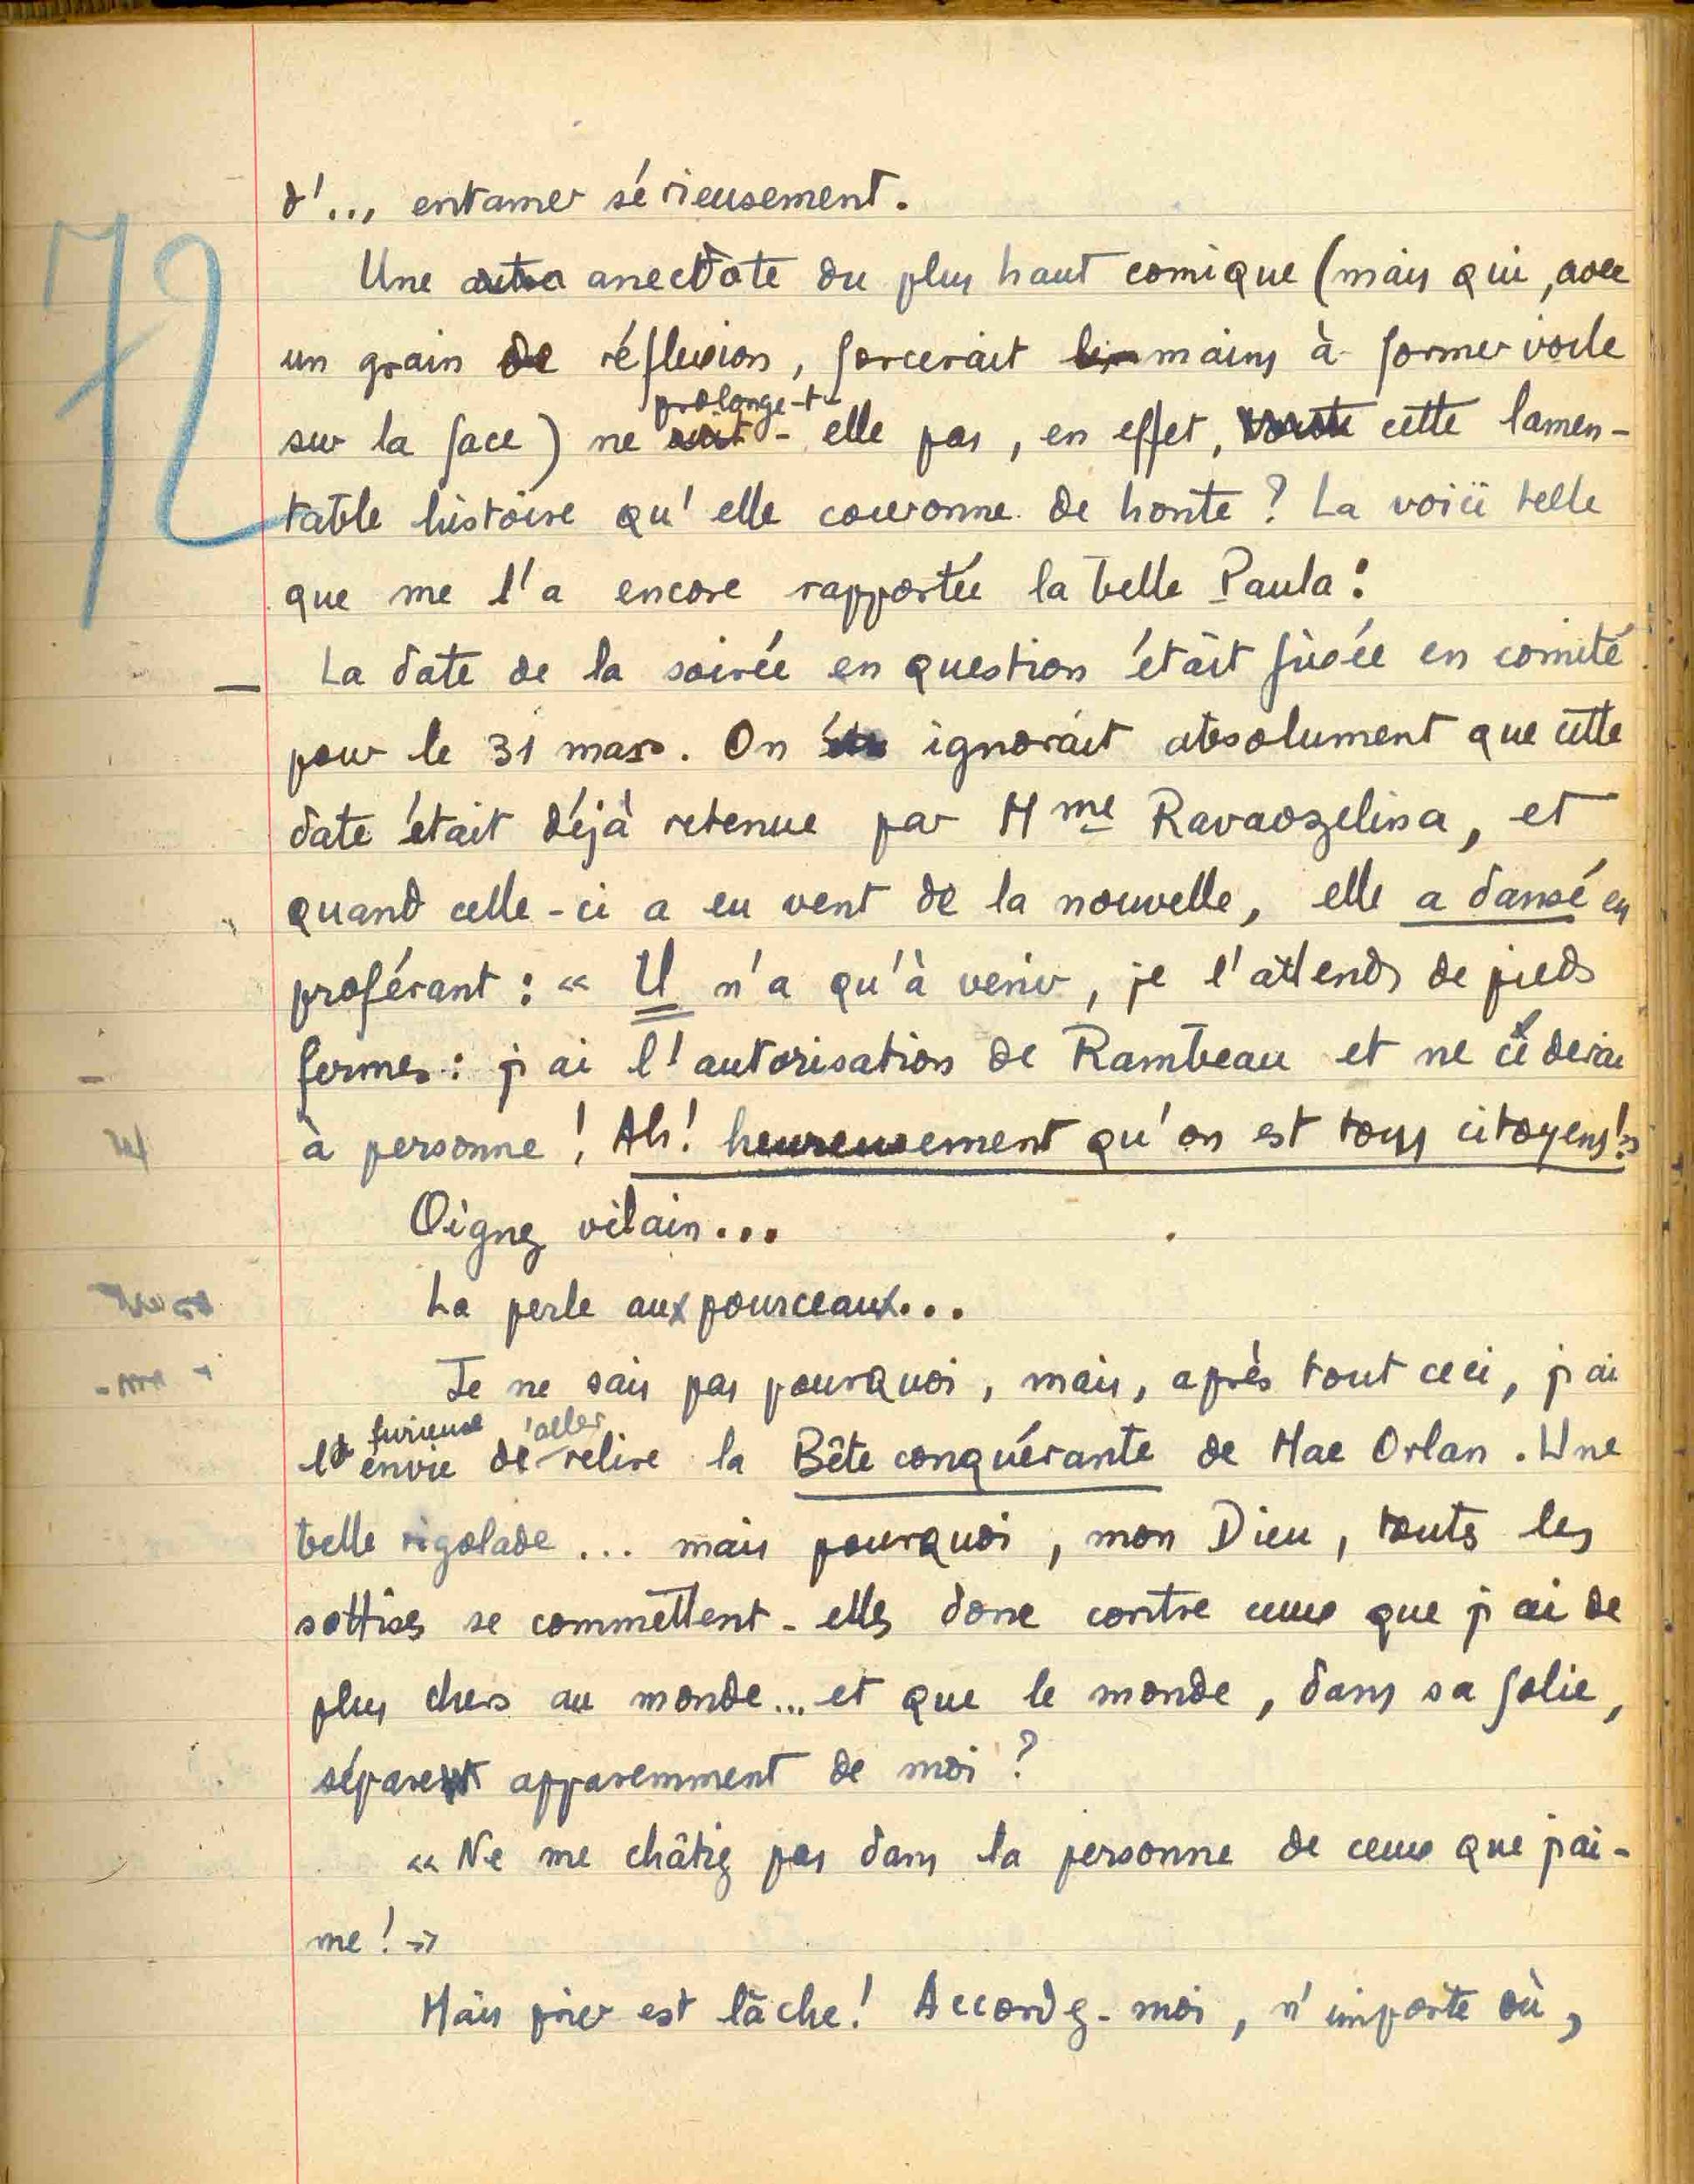 72
d'... entamer sérieusement.
Une autre anecdote du plus haut comique (mais qui, avec
un grain de réflexion, forcerait les mains à former voile
prolonge-t-
sur la face) ne soit - elle pas, en effet, toute cette lamen-
table histoire qu'elle couronne de honte ? La voici telle
que me l'a encore rapportée la belle Paula :
— La date de la soirée en question était fixée en comité
pour le 31 mars. On ignorait absolument que cette
date était déjà retenue par Mme Ravaozelina, et
quand celle-ci a eu vent de la nouvelle, elle a dansé en
proférant : « Il n'a qu'à venir, je l'attends de pieds
fermes : j'ai l'autorisation de Rambeau et ne céderai
à personne ! Ah ! heureusement qu'on est tous citoyens ! »
Oignez vilain...
La perle aux pourceaux...
Je ne sais pas pourquoi, mais, après tout ceci, j'ai
furieuse 'aller
envie de relire la Bête conquérante de Mac Orlan. Une
belle rigolade ... mais pourquoi, mon Dieu, toutes les
sottises se commettent-elles donc contre ceux que j'ai de
plus chers au monde... et que le monde, dans sa folie,
séparent apparemment de moi ?
« Ne me châtiez pas dans la personne de ceux que j'ai-
me ! »
Mais prier est lâche ! Accordez-moi, n'importe où,